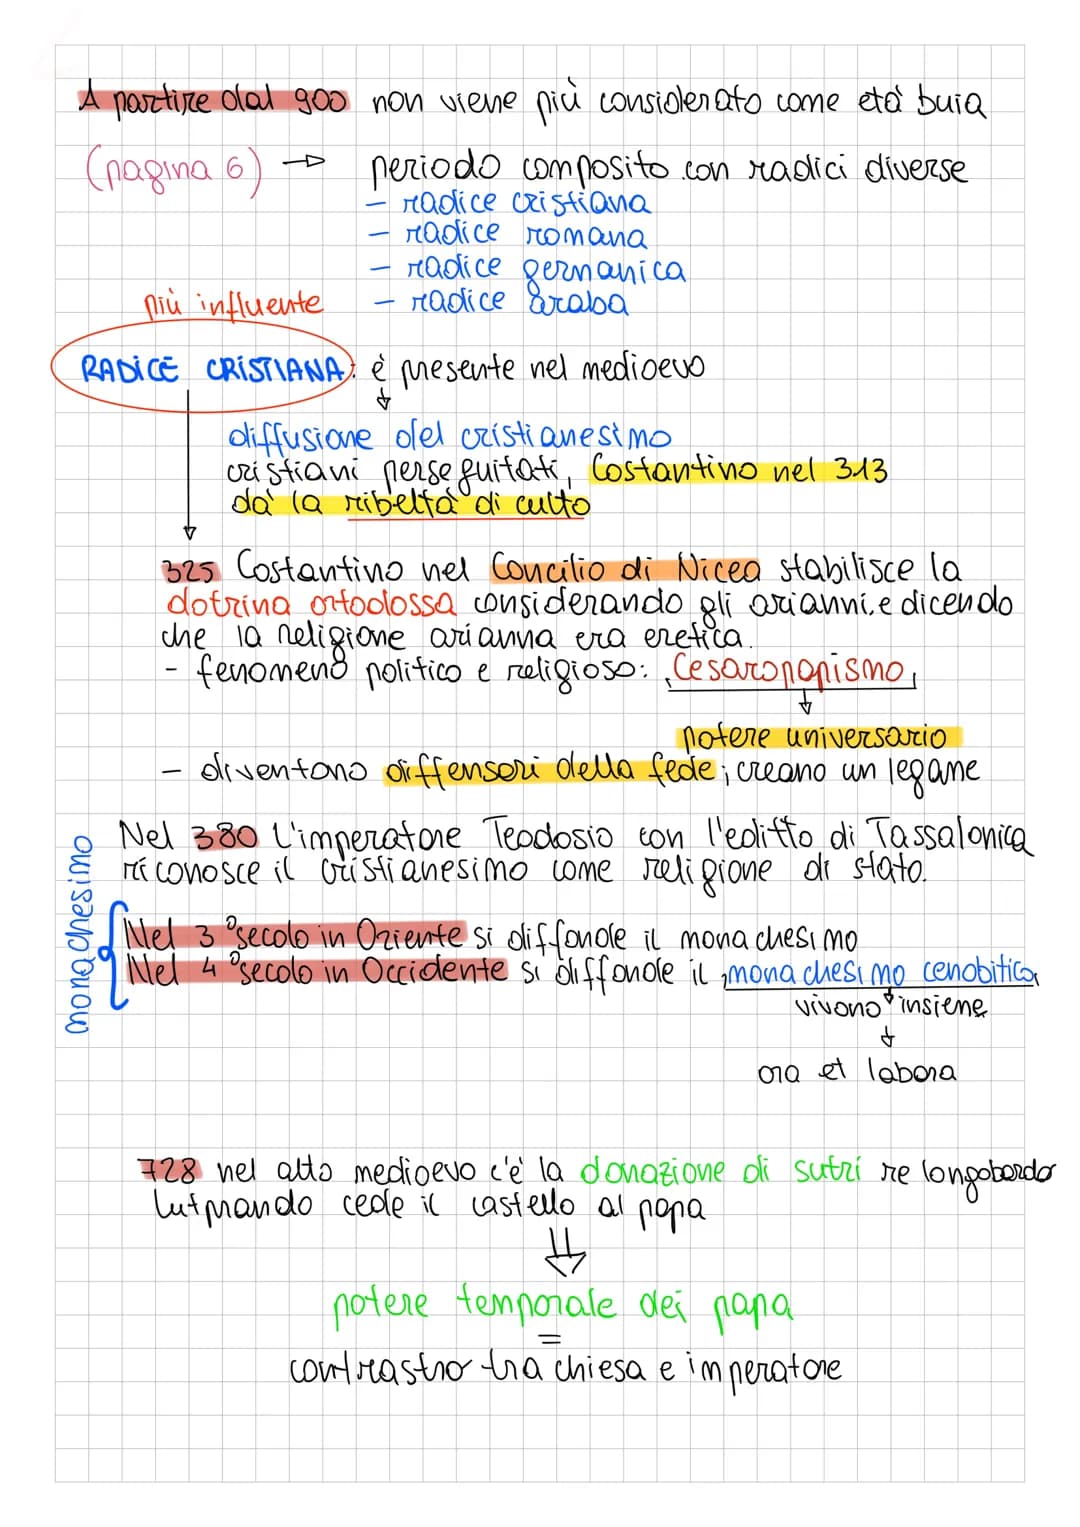 A partire dal 900 non viene più considerato come età buia
(pagina 6) → periodo composito con radici diverse
- radice cristiana
- radice romana
- radice germanica
- radice araba
più influente
RADICE CRISTIANA: è presente nel medioevo
diffusione del cristianesimo
cristiani perseguitati, Costantino nel 313
da' la ribeltà di culto
325 Costantino nel Concilio di Nicea stabilisce la
dotrina ortodossa considerando gli arianni e dicendo
che la religione arianna era eretica.
- fenomeno politico e religioso: Cesaropapismo
potere universario
- diventano diffensori della fede; creano un legame
Nel 380 L'imperatore Teodosio con l'editto di Tassalonica
riconosce il cristianesimo come religione di stato.
monachesimo
Nel 3° secolo in Oriente si diffonde il monachesimo
Nel 4° secolo in Occidente si diffonde il monachesimo cenobitico
vivono insieme
ora et labora
728 nel alto medioevo c'è la donazione di sutri re longobardo
Lutprando cede il castello al papa
potere temporale dei papa
=
contrastro tra chiesa e imperatore